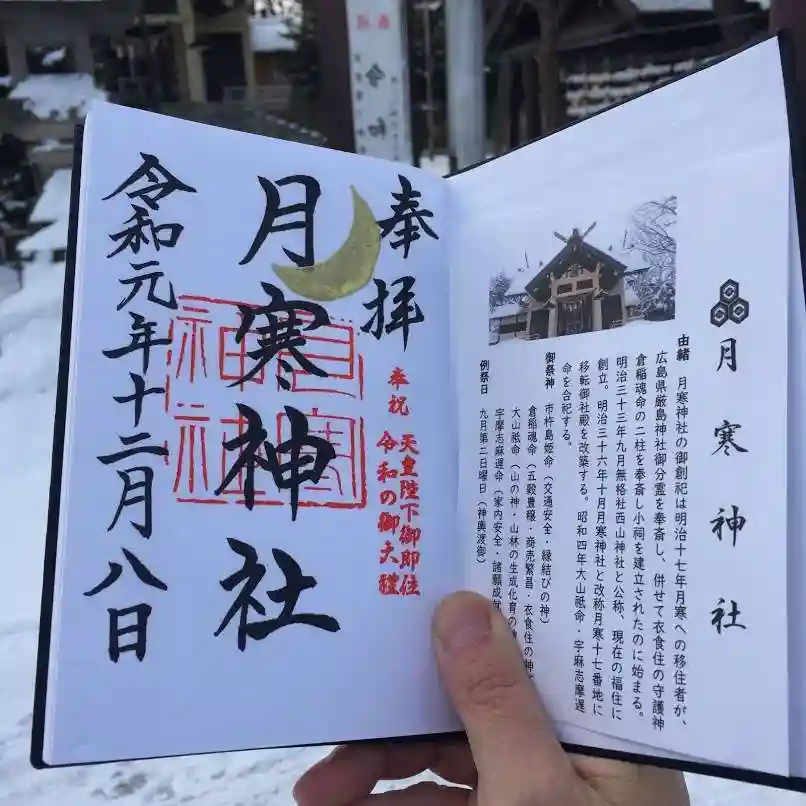 月寒神社
由緒 月寒神社の御創祀は明治十七年月寒への移住者が、
広島県厳島神社御分霊を奉斎し、併せて衣食住の守護神
倉稲魂命の二柱を奉斎し小祠を建立されたのに始まる。
明治三十三年九月無格社西山神社と公称、現在の福住に
創立。明治三十六年十月月寒神社と改称月寒十七番地に
移転御社殿を改築する。昭和四年大山祗命・宇麻志摩遅
命を合祀する。
御祭神 市杵島姫命(交通安全・縁結びの神)
倉稲魂命(五穀豊穣・商売繁昌・衣食住の神
大山祗命(山の神・山林の生成化育の
宇摩志麻遅命(家内安全・諸願成就
例祭日 九月第二日曜日(神輿渡御)
奉拝
奉祝 天皇陛下御即位
令和の御大禮
月寒神社
月寒
神社
令和元年十二月八日
令和